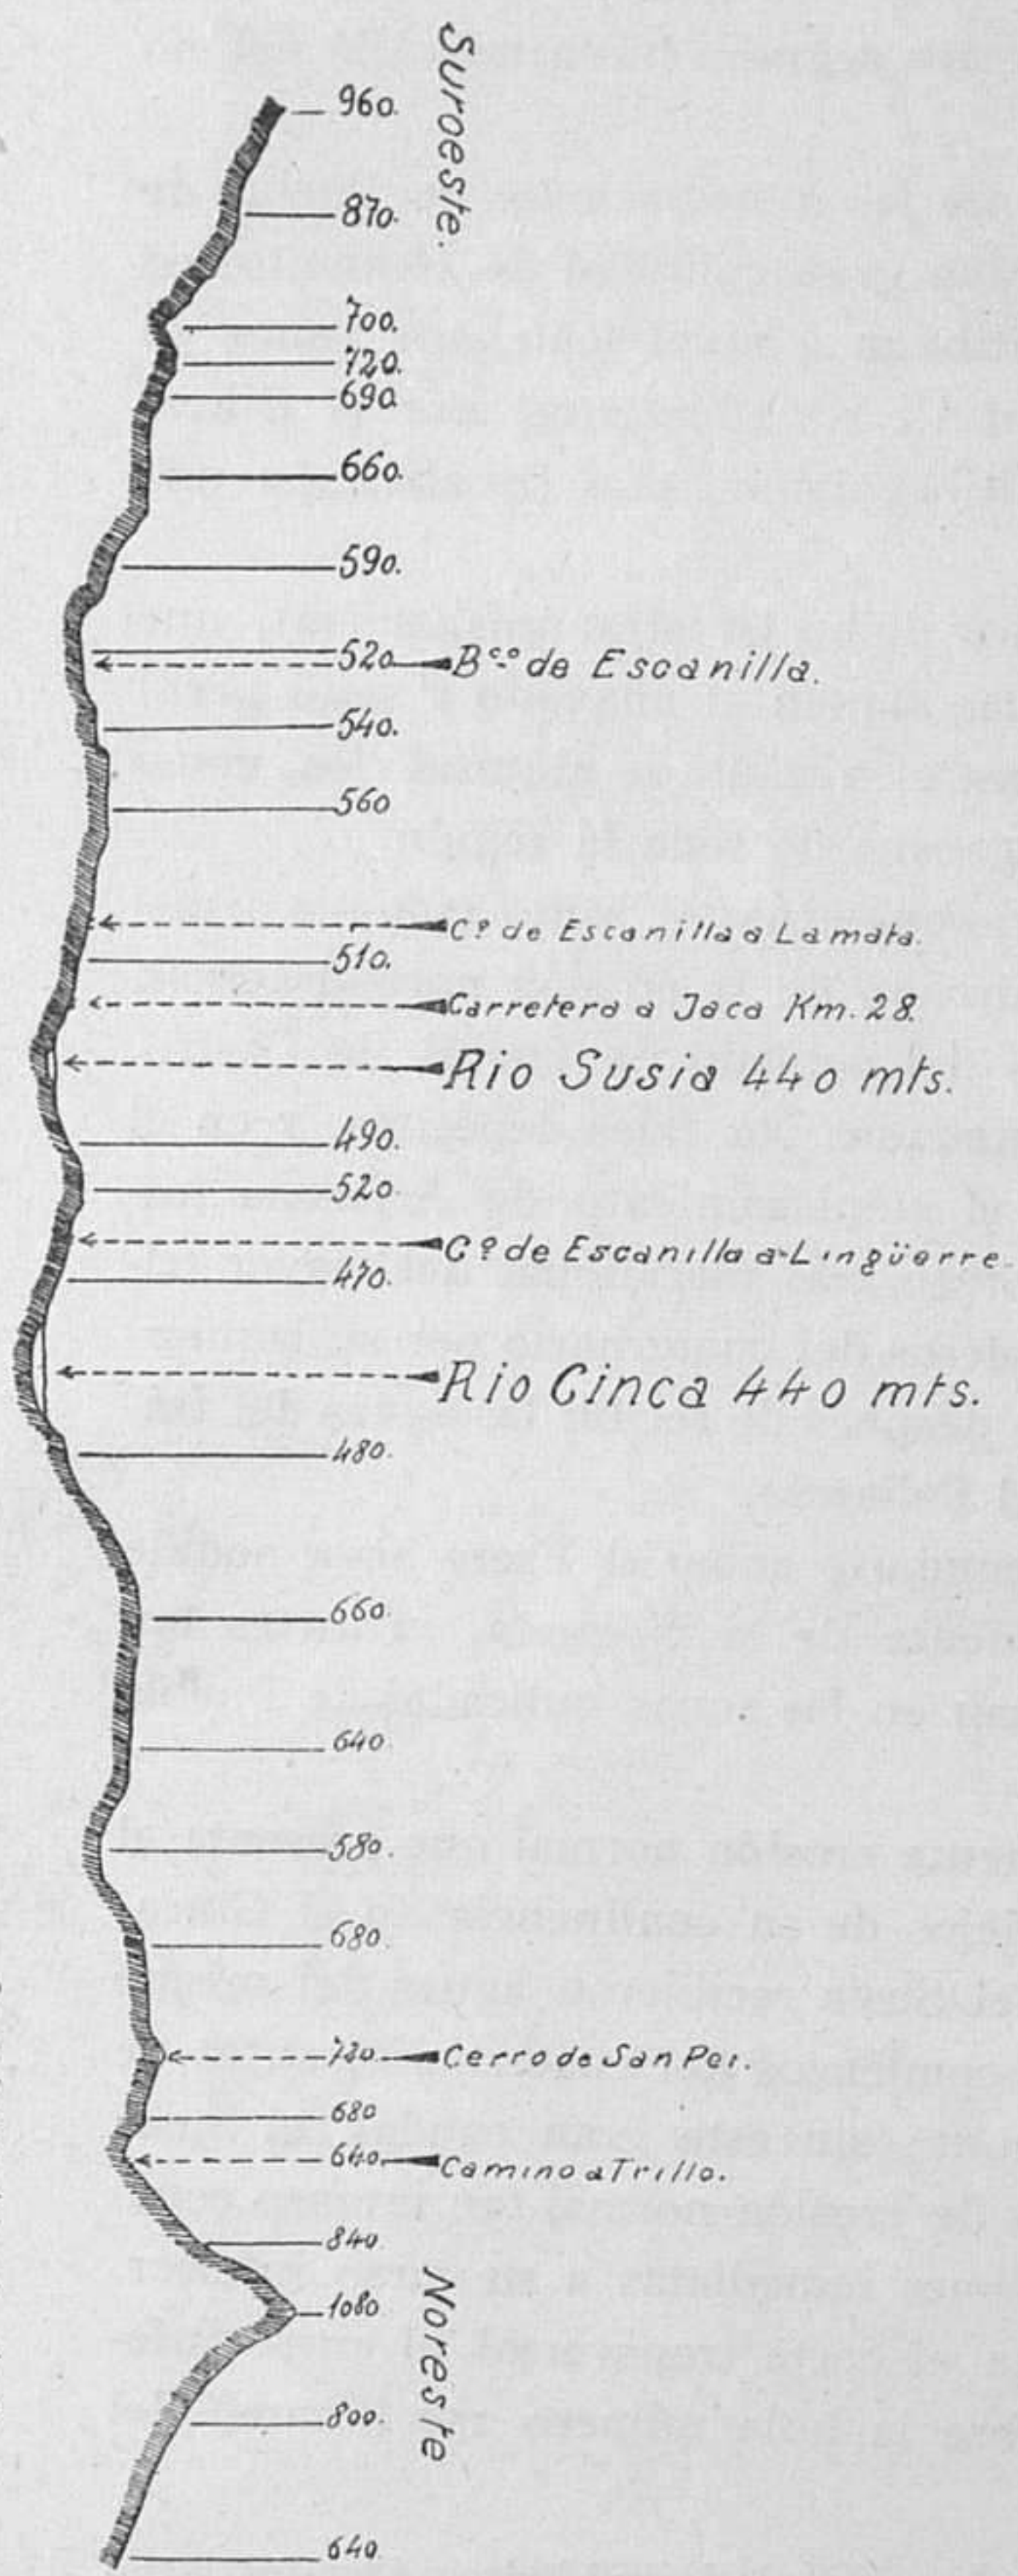 Suroeste.
960.
870.
700.
720.
690
660.
590.
520 Bco de Escanilla.
540.
560
Cº de Escanilla a Lamata.
510.
Carretera a Jaca Km. 28.
Rio Susia 440 mts.
490.
520.
Cº de Escanilla a Lingüerre.
470.
Rio Cinca 440 mts.
480.
660.
640.
580.
680.
Cerro de San Per.
680
640. Camino a Trillo.
840
1080
Noreste
800.
640.